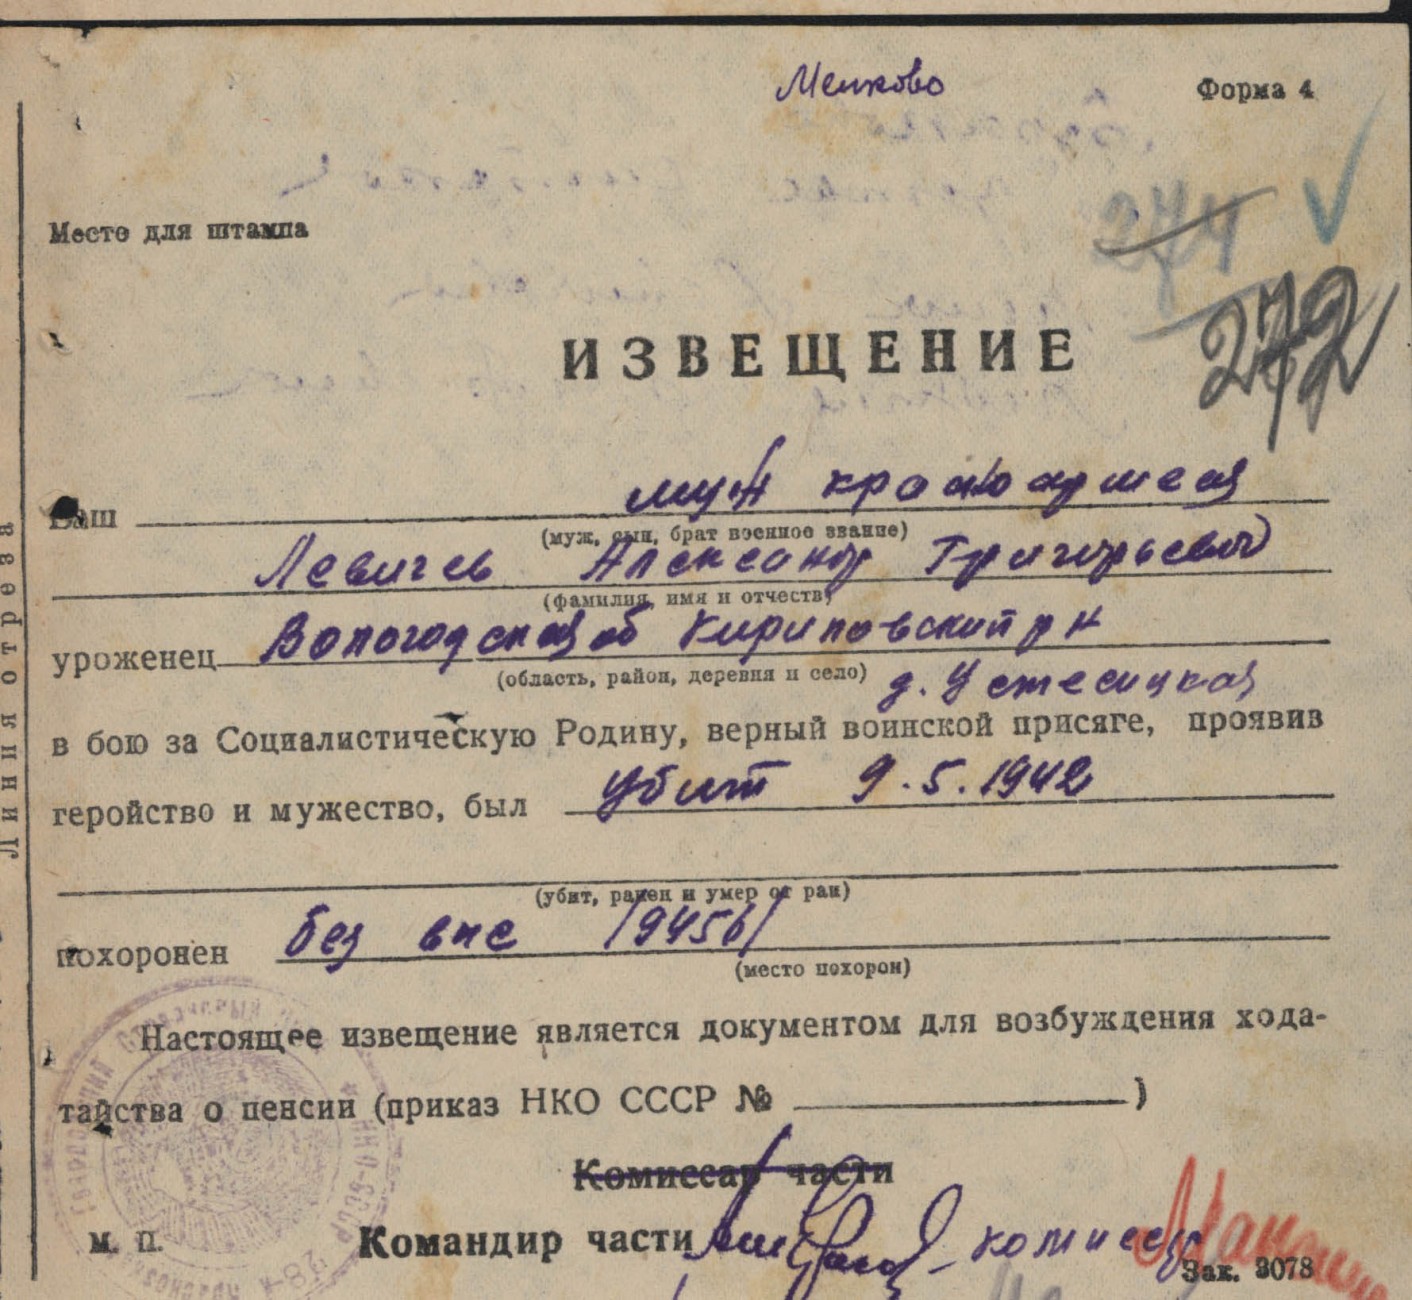 Форма 4
274
272
Место для штампа
ИЗВЕЩЕНИЕ
Ваш муж красноармеец
(муж, сын, брат военное звание)
Левичев Александр Григорьевич
(фамилия, имя и отчеств)
уроженец Вологодская об Кирилловский рн
(область, район, деревня и село)
в бою за Социалистическую Родину, верный воинской присяге, проявив
геройство и мужество, был убит 9.5.1942
(убит, ранен и умер от ран)
похоронен без вне /9456/
(место похорон)
Настоящее извещение является документом для возбуждения хода-
тайства о пенсии (приказ НКО СССР № )
Комиссар части
М. П. Командир части
Зак. 3078
Линия отреза